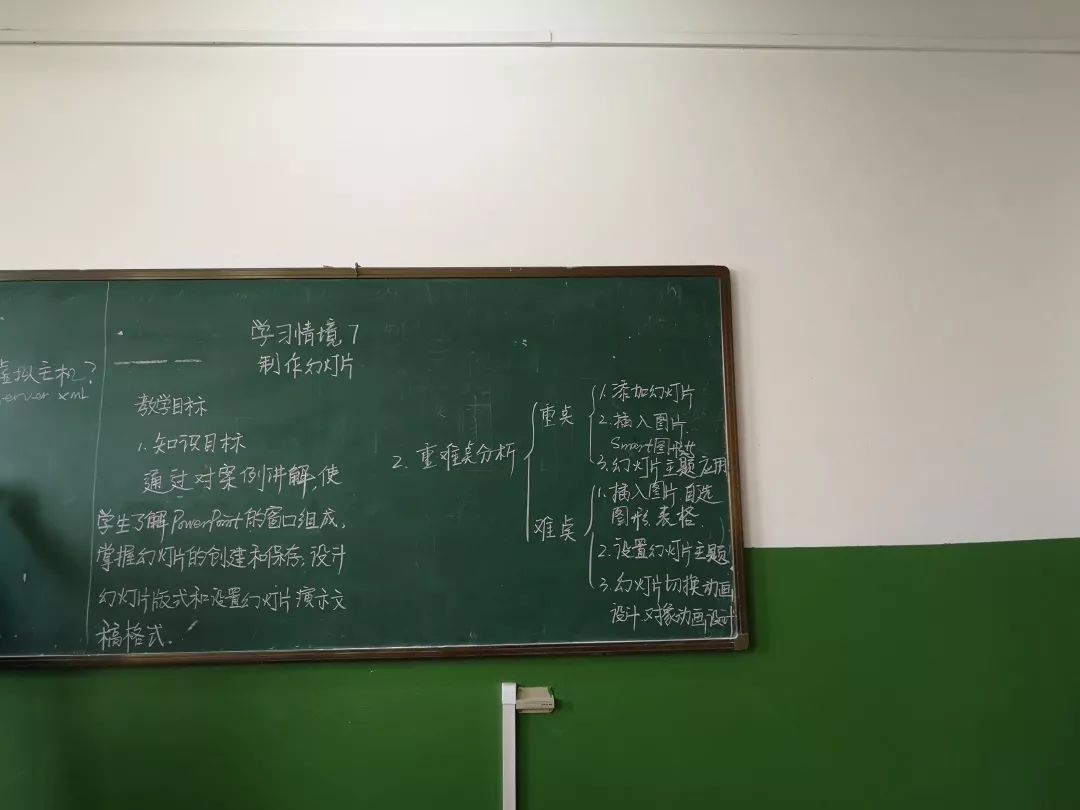 虚拟主机?
server xml
学习情境7
制作幻灯片
教学目标
1.知识目标
通过对案例讲解,使
学生了解PowerPoint的窗口组成,
掌握幻灯片的创建和保存,设计
幻灯片版式和设置幻灯片演示文
稿格式.
2.重难点分析
重点
1.添加幻灯片
2.插入图片
Smart图形
3.幻灯片主题应用
难点
1.插入图片 自选
图形.表格.
2.设置幻灯片主题.
3.幻灯片切换动画
设计.对象动画设计